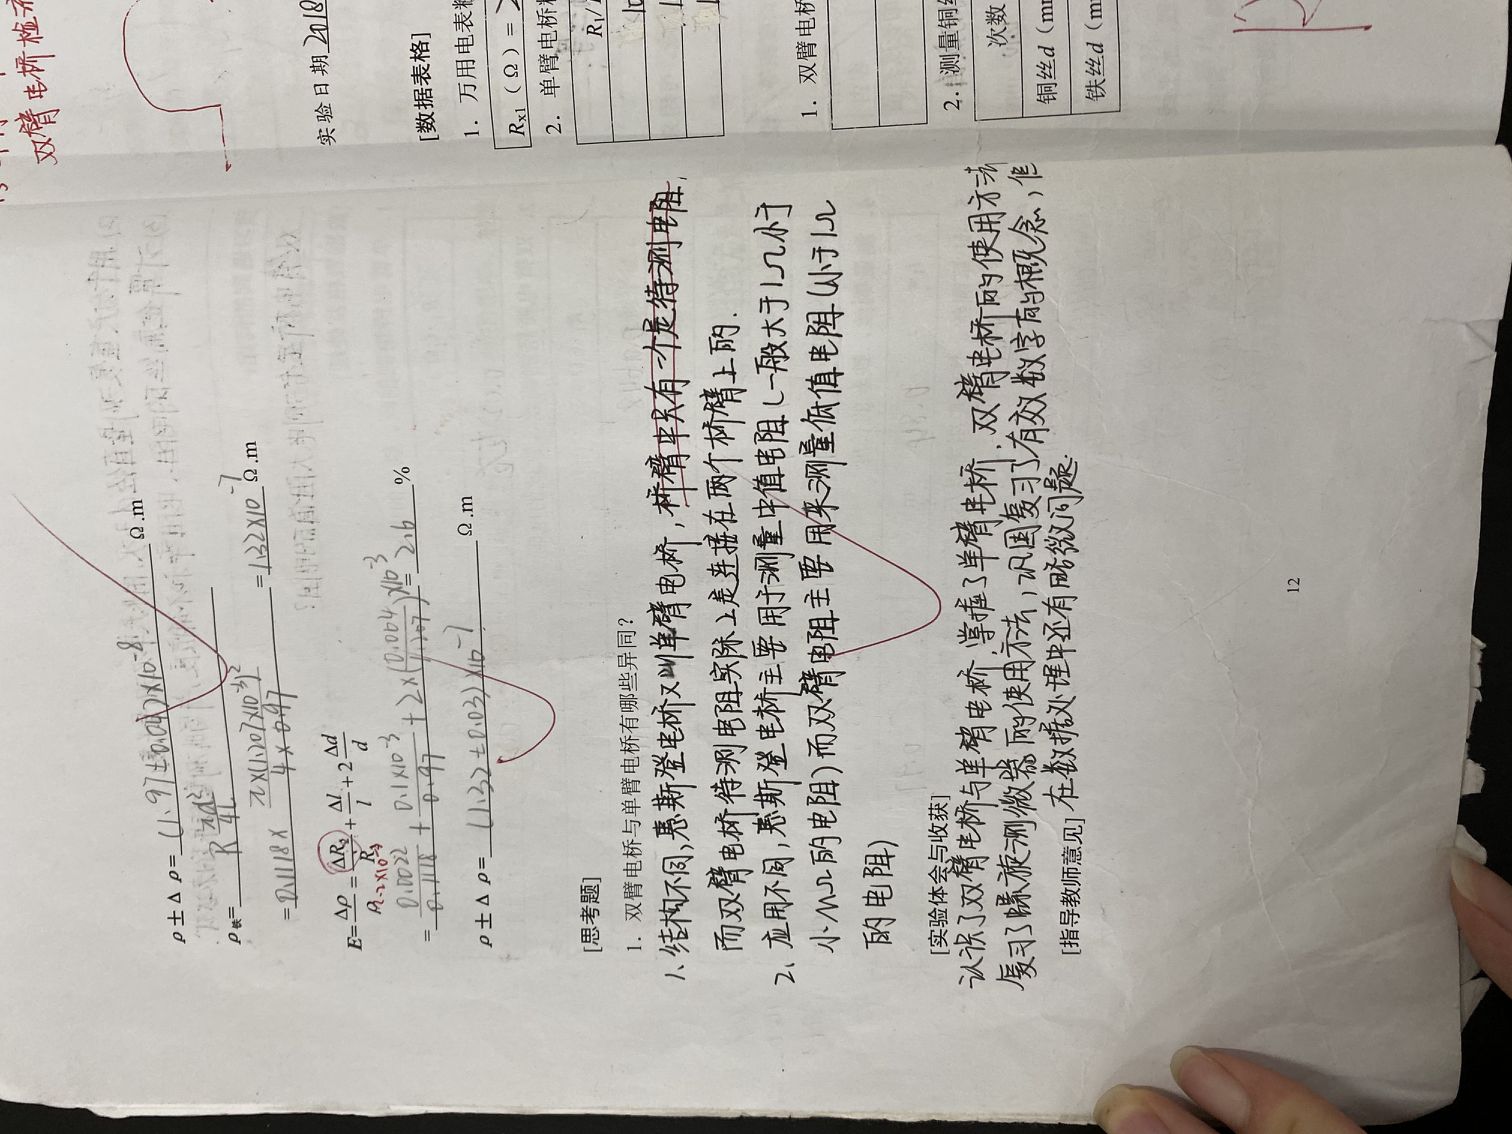 ρ±Δρ=(1.97±0.04)×10⁻⁸ Ω.m
ρ铁=R πd²/4L
=0.1118× π×(1.207×10⁻³)²/4×0.97 =1.32×10⁻⁷ Ω.m
E=Δρ/ρ=ΔR₂/R+Δl/l+2Δd/d
=0.0022/0.1118+0.1×10⁻³/0.97+2×(0.004/1.207)×10⁻³=2.6%
ρ±Δρ=(1.32±0.03)×10⁻⁷ Ω.m
[思考题]
1. 双臂电桥与单臂电桥有哪些异同?
1、结构不同,惠斯登电桥又叫单臂电桥,桥臂中只有一个是待测电阻,
而双臂电桥待测电阻实际上是连接在两个桥臂上的.
2、应用不同,惠斯登电桥主要用于测量中值电阻(一般大于1Ω小于
的电阻)而双臂电阻主要用来测量低值电阻(小于1Ω
的电阻)
[实验体会与收获]
认识了双臂电桥与单臂电桥,掌握了单臂电桥、双臂电桥的使用方法
复习了螺旋测微器的使用方法,巩固复习了有效数字的概念,但
[指导教师意见] 在数据处理中还有略微问题.
12
双臂电桥检流
实验日期 2018
[数据表格]
1. 万用电表粗
Rx1(Ω)=
2. 单臂电桥
R₁/
1. 双臂电桥
2. 测量铜丝
次数
铜丝d(mm
铁丝d(mm